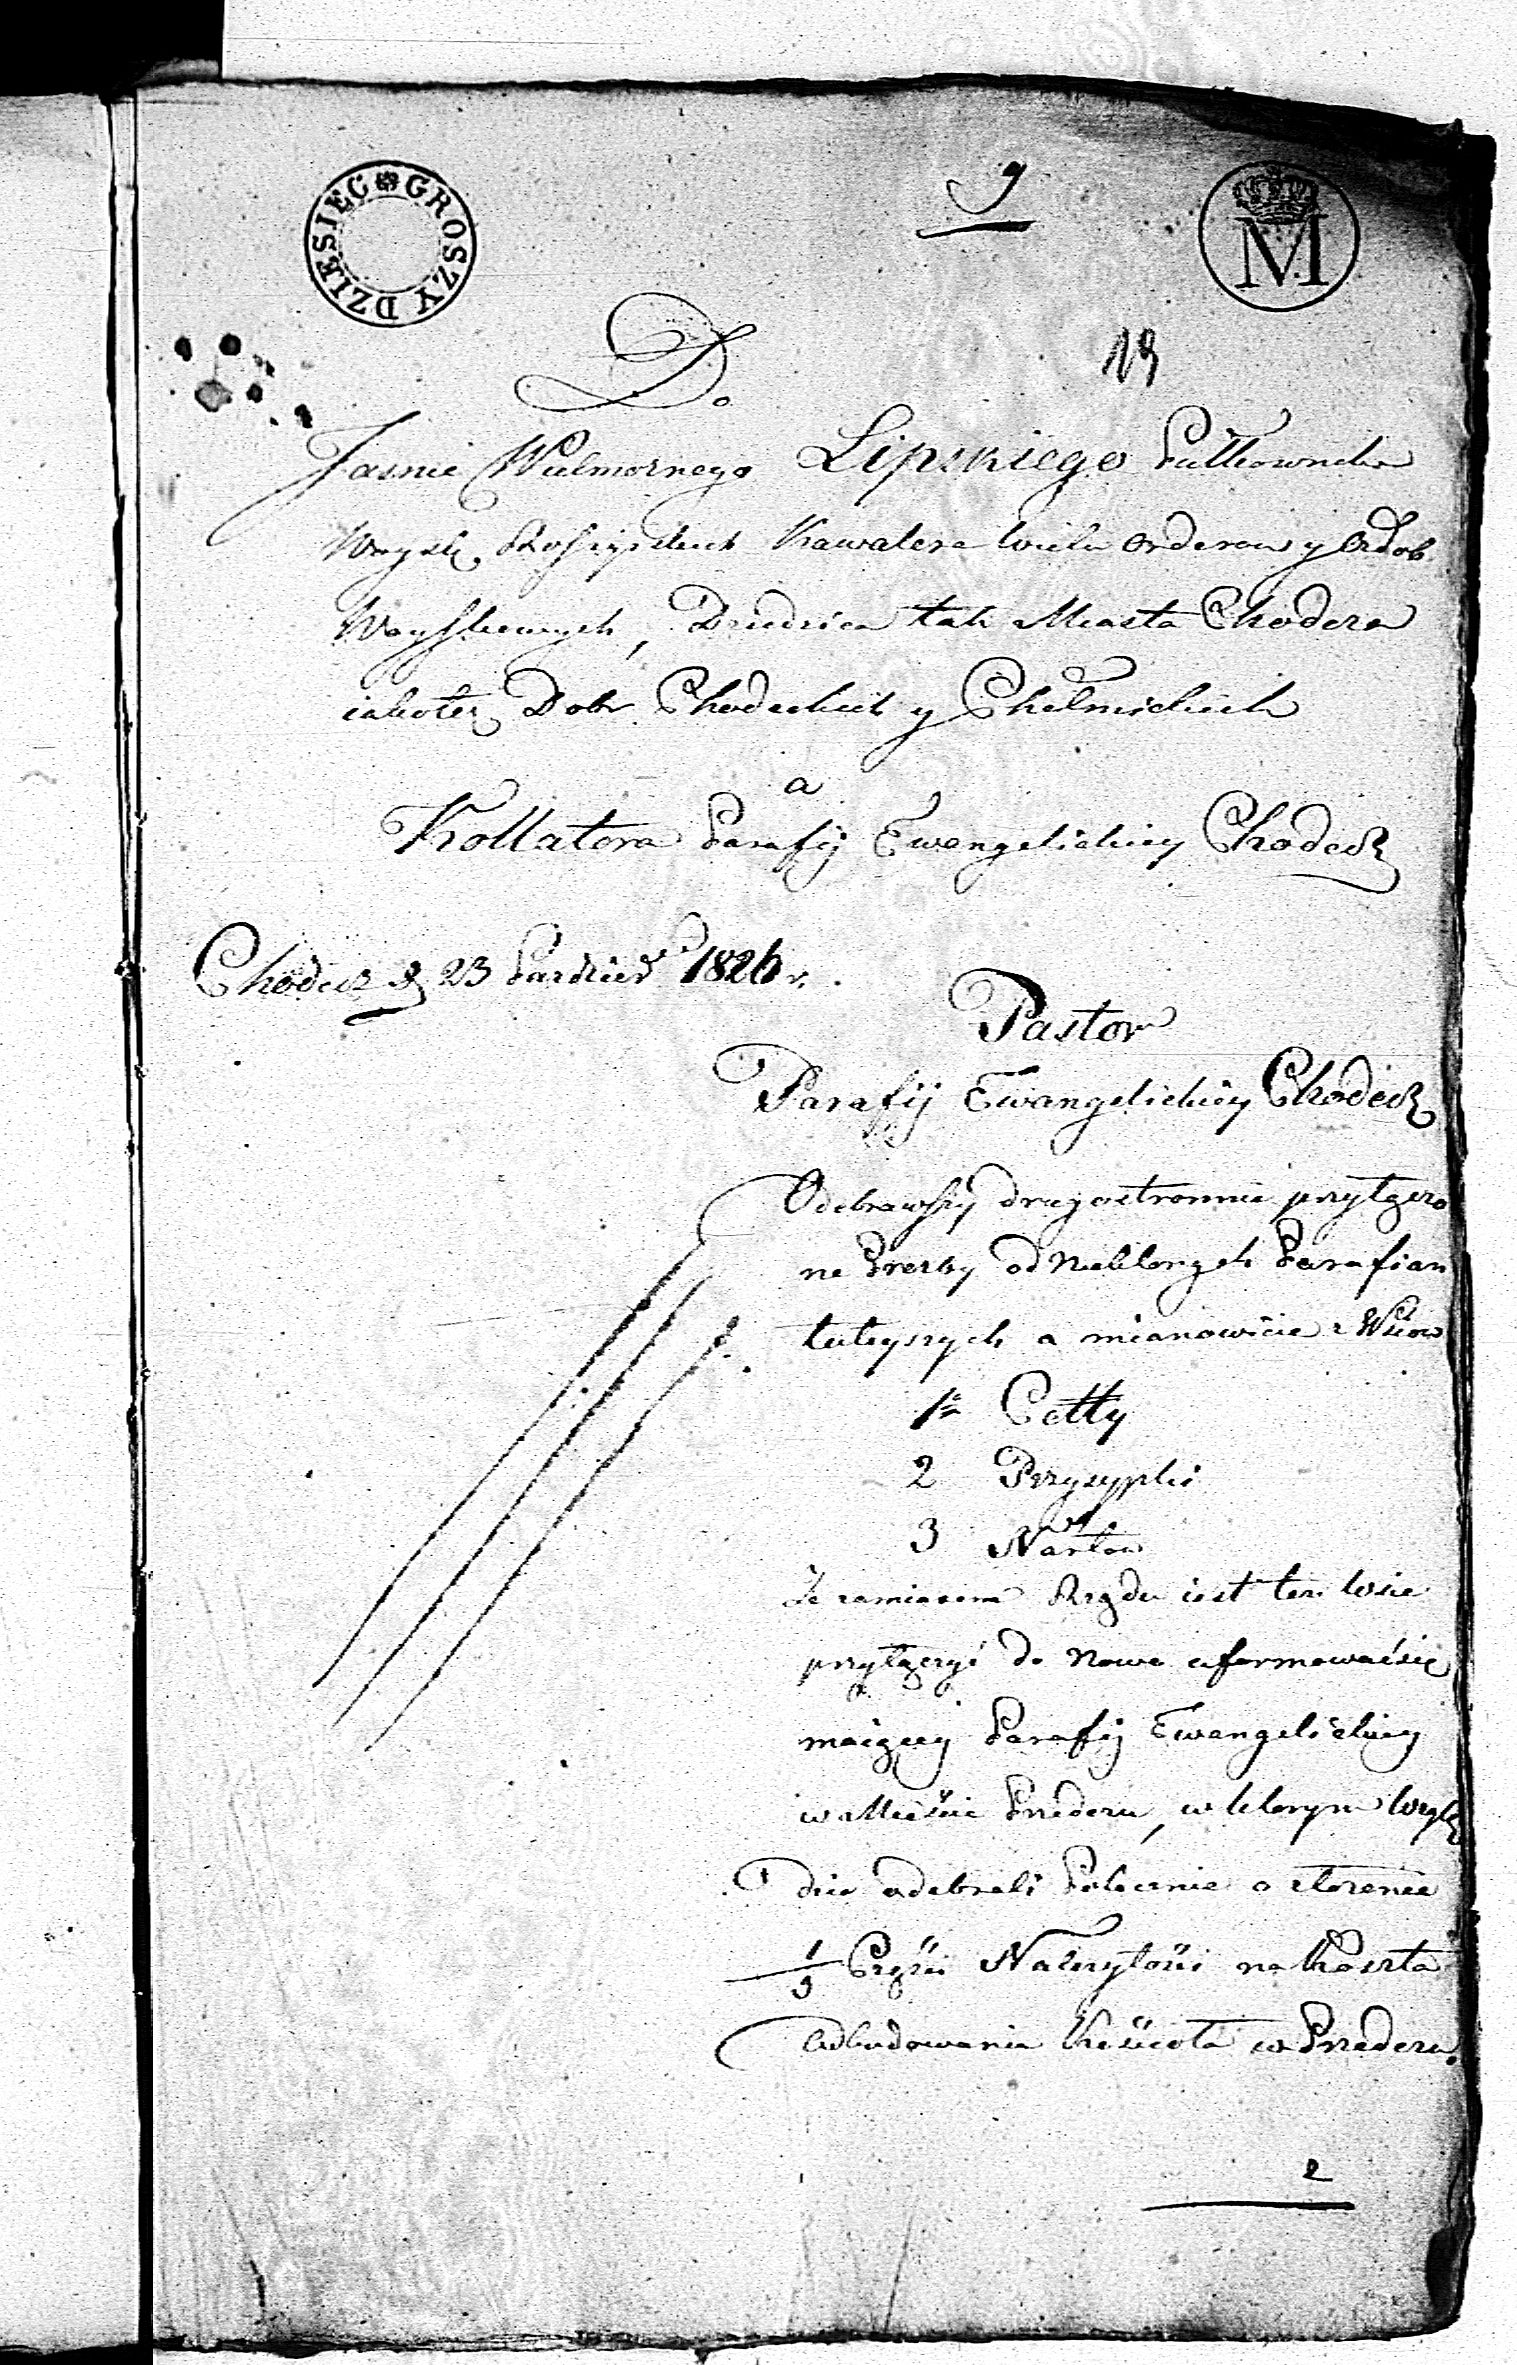 DZIESIEC GROSZY
9
M
19
Do
Jasnie Wielmoznego Lipskiego Pułkownika
Woysk Rossyiskich Kawalera wielu orderow y Ozdob
Woyskowych, Dziedzica tak Miasta Chodcza
iakotez Dobr Chodeckich y Chełmickich
a
Kollatora Parafij Ewangelickiey Chodecz
Chodecz d 23 Pazdzier 1826 r.
Pastor
Parafij Ewangelickiey Chodecz
Odebrawszy drugostronnie przyłączo
ne Prozby od niektorych Parafian
tuteyszych a mianowicie z Wsiow
1o Cetty
2 Przysypki
3 Narton
Ze zamiarem Rządu iest ten wsie
przyłączyć do nowo uformować się
maiącey Parafij Ewangelickiey
w Mieście Przedczu, w ktorym wzglę
dzie odebrali Polecenie o złozenie
1/3 Części Nalezytości na koszta
odbudowania kościoła w Przedczu.
2